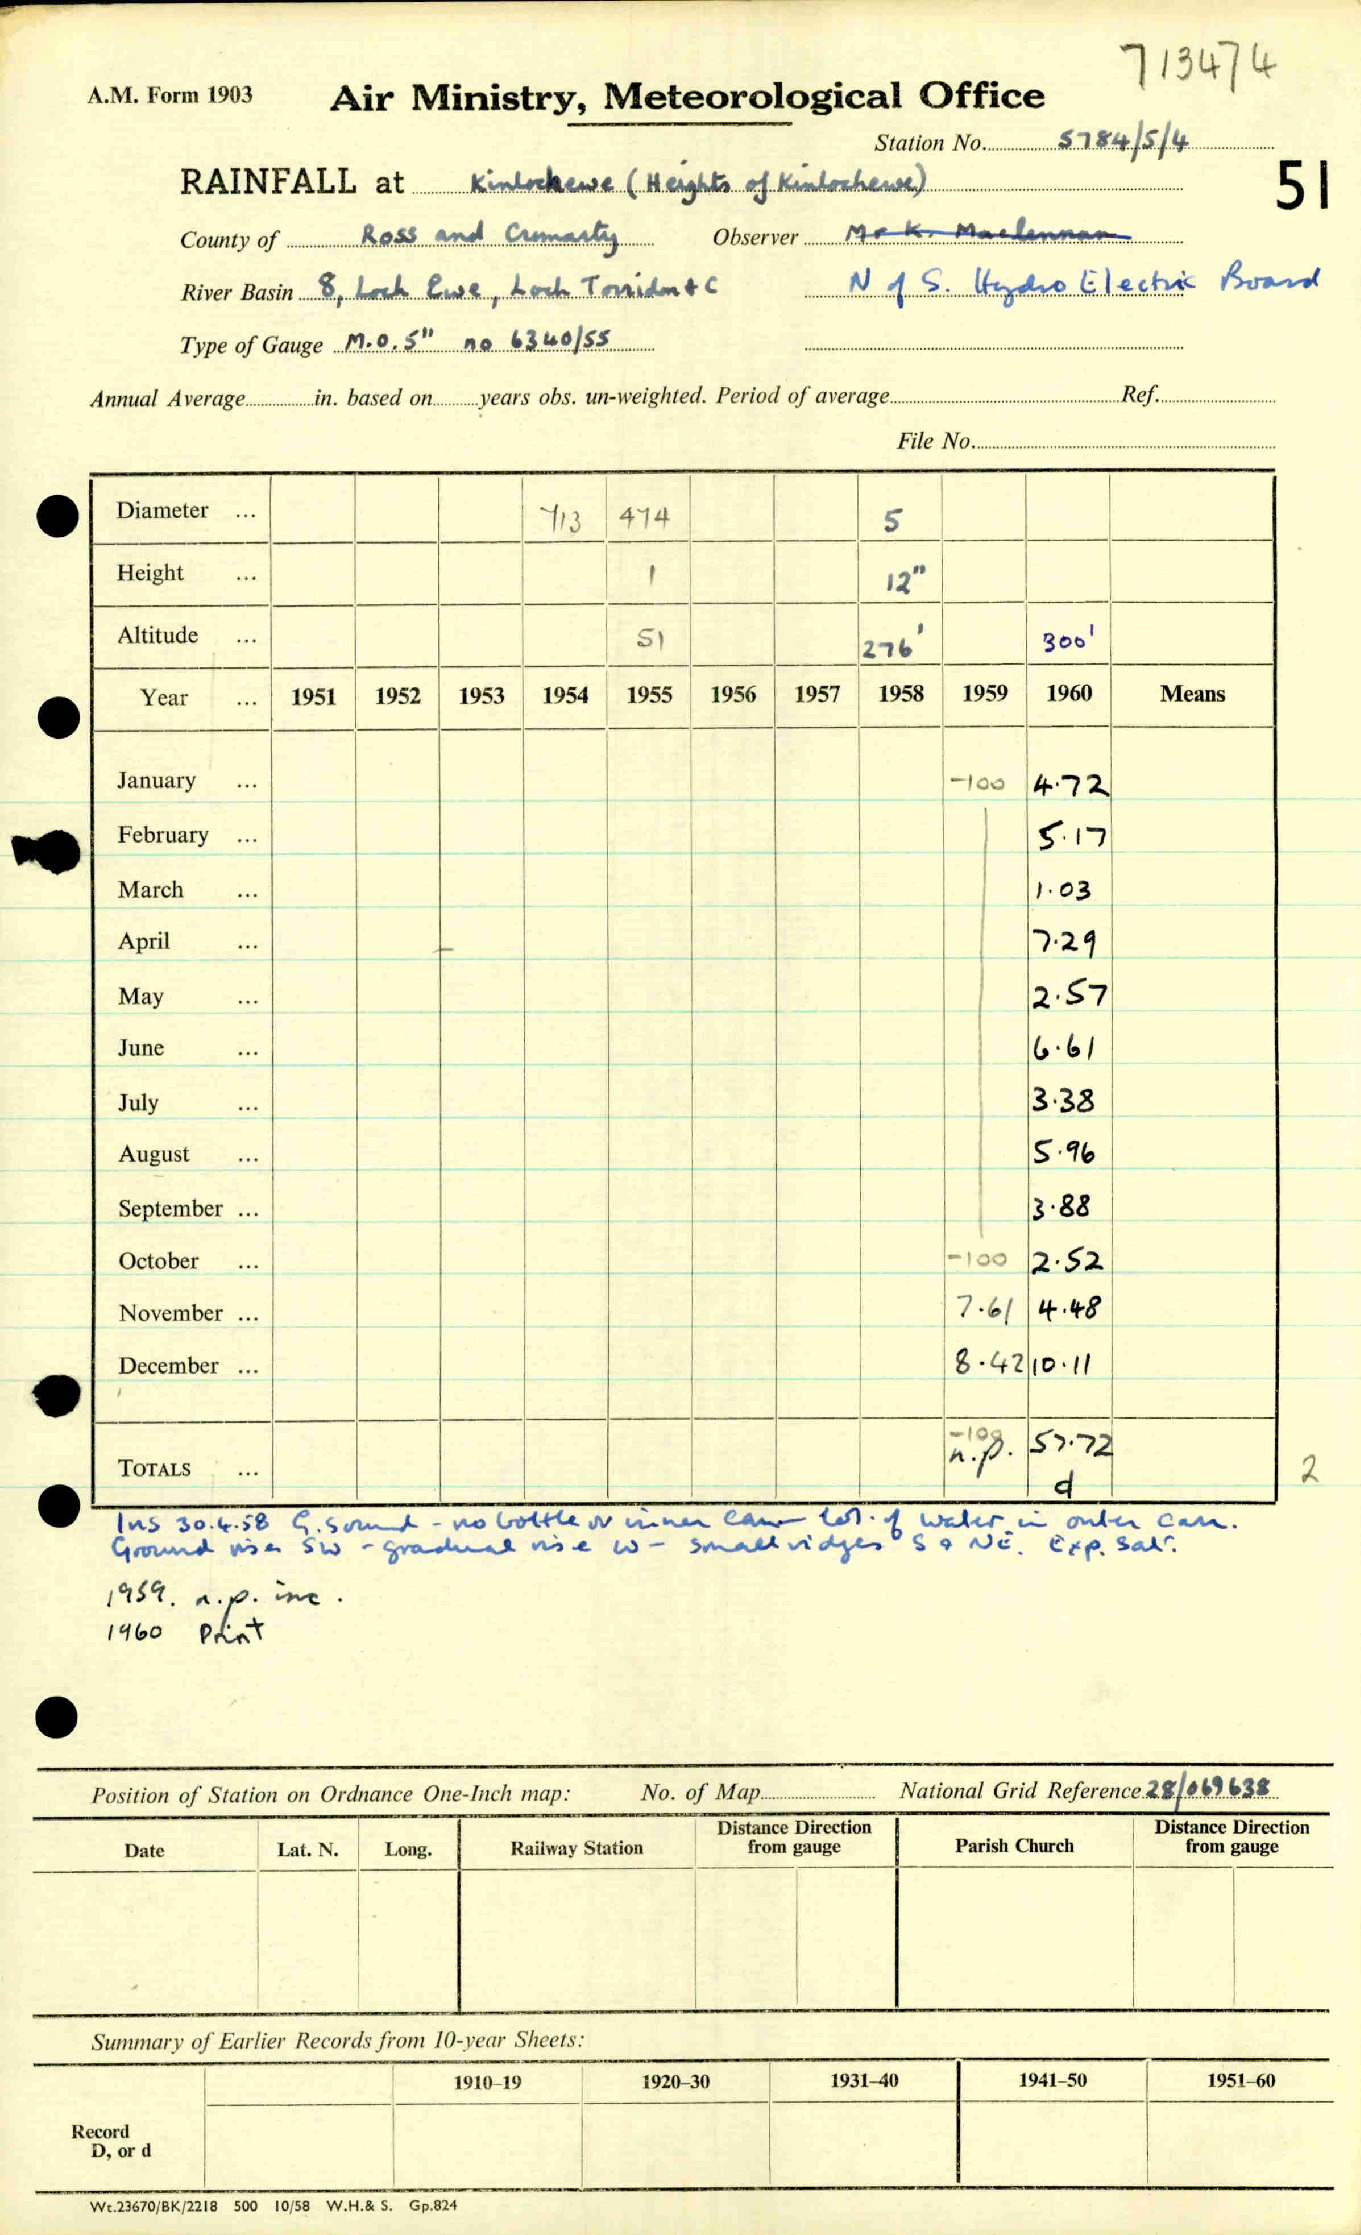 713474
A.M. Form 1903 Air Ministry, Meteorological Office
Station No. 5784/5/4
51
RAINFALL at Kinlochewe (Heights of Kinlochewe)
County of Ross and Cromarty Observer Mr K. Maclennan
River Basin 8, Loch Ewe, Loch Torridon & C N of S. Hydro Electric Board
Type of Gauge M.O. 5" no 6340/55
Annual Average in. based on years obs. un-weighted. Period of average Ref.
File No.
Diameter ... 713 474 5
Height ... 1 12"
Altitude ... 51 276' 300'
Year ... 1951 1952 1953 1954 1955 1956 1957 1958 1959 1960 Means
January ... -100 4.72
February ... 5.17
March ... 1.03
April ... 7.29
May ... 2.57
June ... 6.61
July ... 3.38
August ... 5.96
September ... 3.88
October ... -100 2.52
November ... 7.61 4.48
December ... 8.42 10.11
-100
TOTALS ... n.p. 57.72
d
2
Ins 30.4.58 G. sound - no bottle or inner can of water in outer can.
Ground rises SW - gradual rise W - small ridges S & NE. Exp. Sat.
1959. n.p. inc.
1960 Print
Position of Station on Ordnance One-Inch map: No. of Map National Grid Reference 28/069638
Date Lat. N. Long. Railway Station Distance Direction from gauge Parish Church Distance Direction from gauge
Summary of Earlier Records from 10-year Sheets:
1910–19 1920–30 1931–40 1941–50 1951–60
Record
D, or d
Wt.23670/BK/2218 500 10/58 W.H.& S. Gp.824